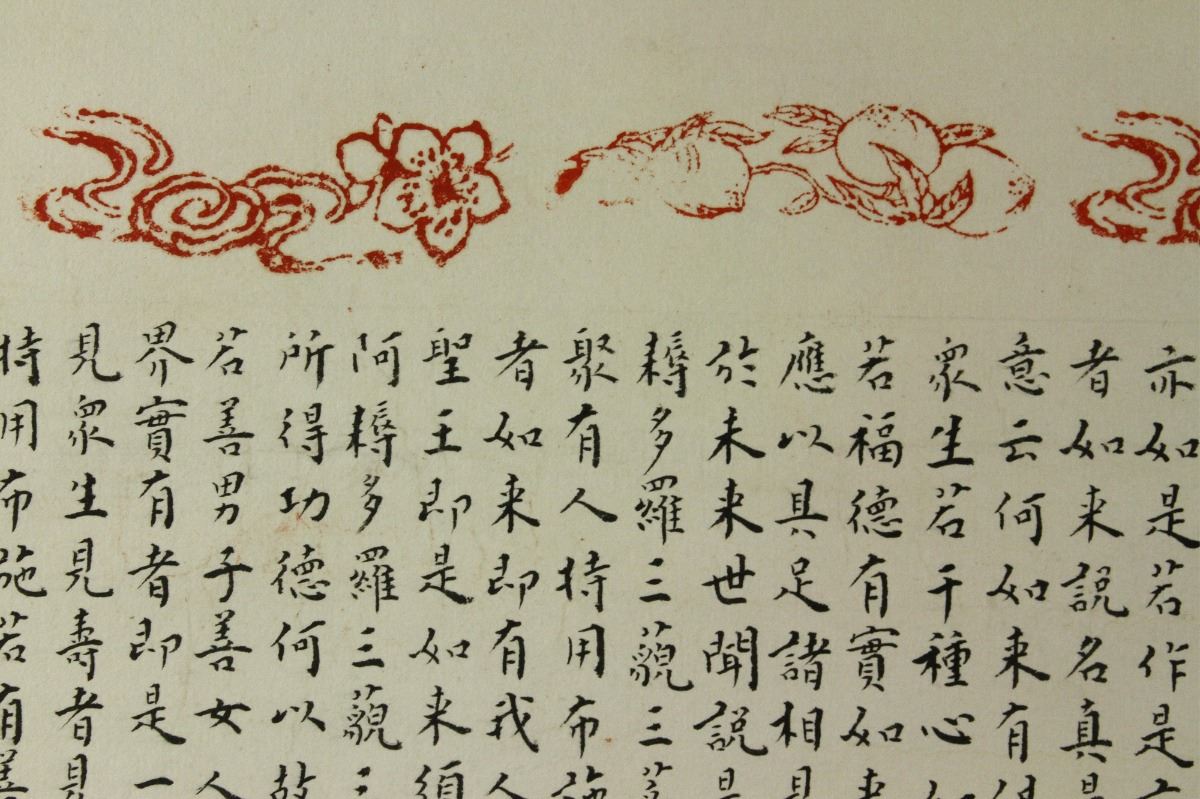 亦如是若作是
者如来説名真是
意云何如来有得
衆生若干種心如
若福德有實如来
應以具足諸相見
於未来世聞説是
耨多羅三藐三菩
聚有人持用布施
者如来即有我人
聖王即是如来須
阿耨多羅三藐三
所得功德何以故
若善男子善女人
界實有者即是一
見衆生見壽者見
持用布施若有善